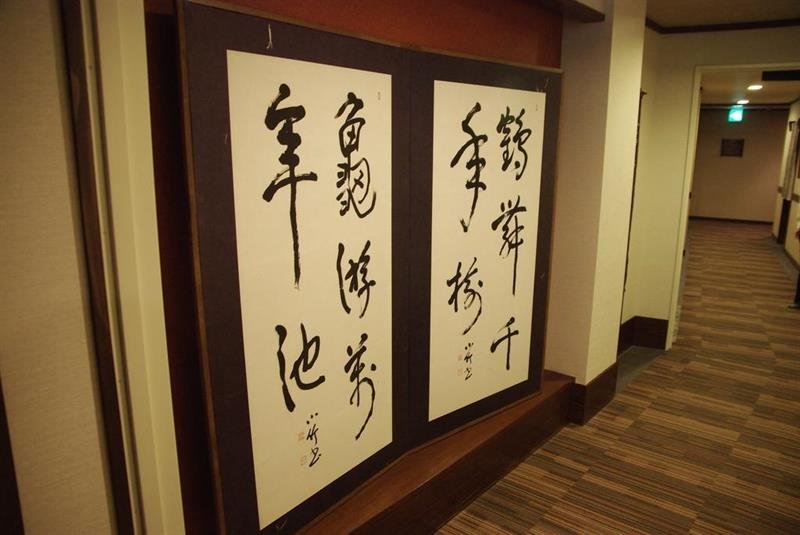 鶴舞千
年樹
龜游萬
年池